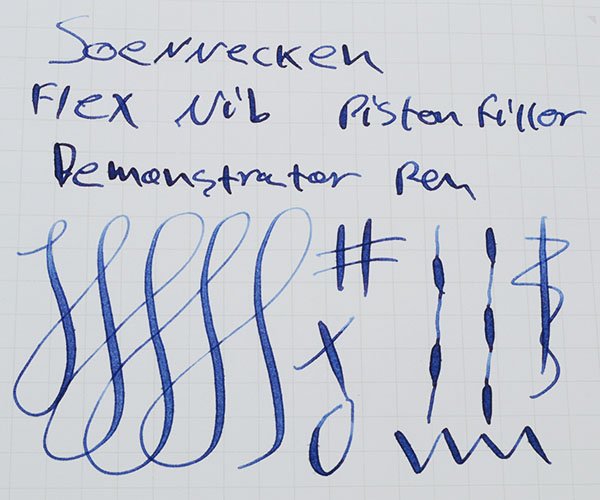 Soennecken
Flex Nib Piston Filler
Demonstrator Pen
#